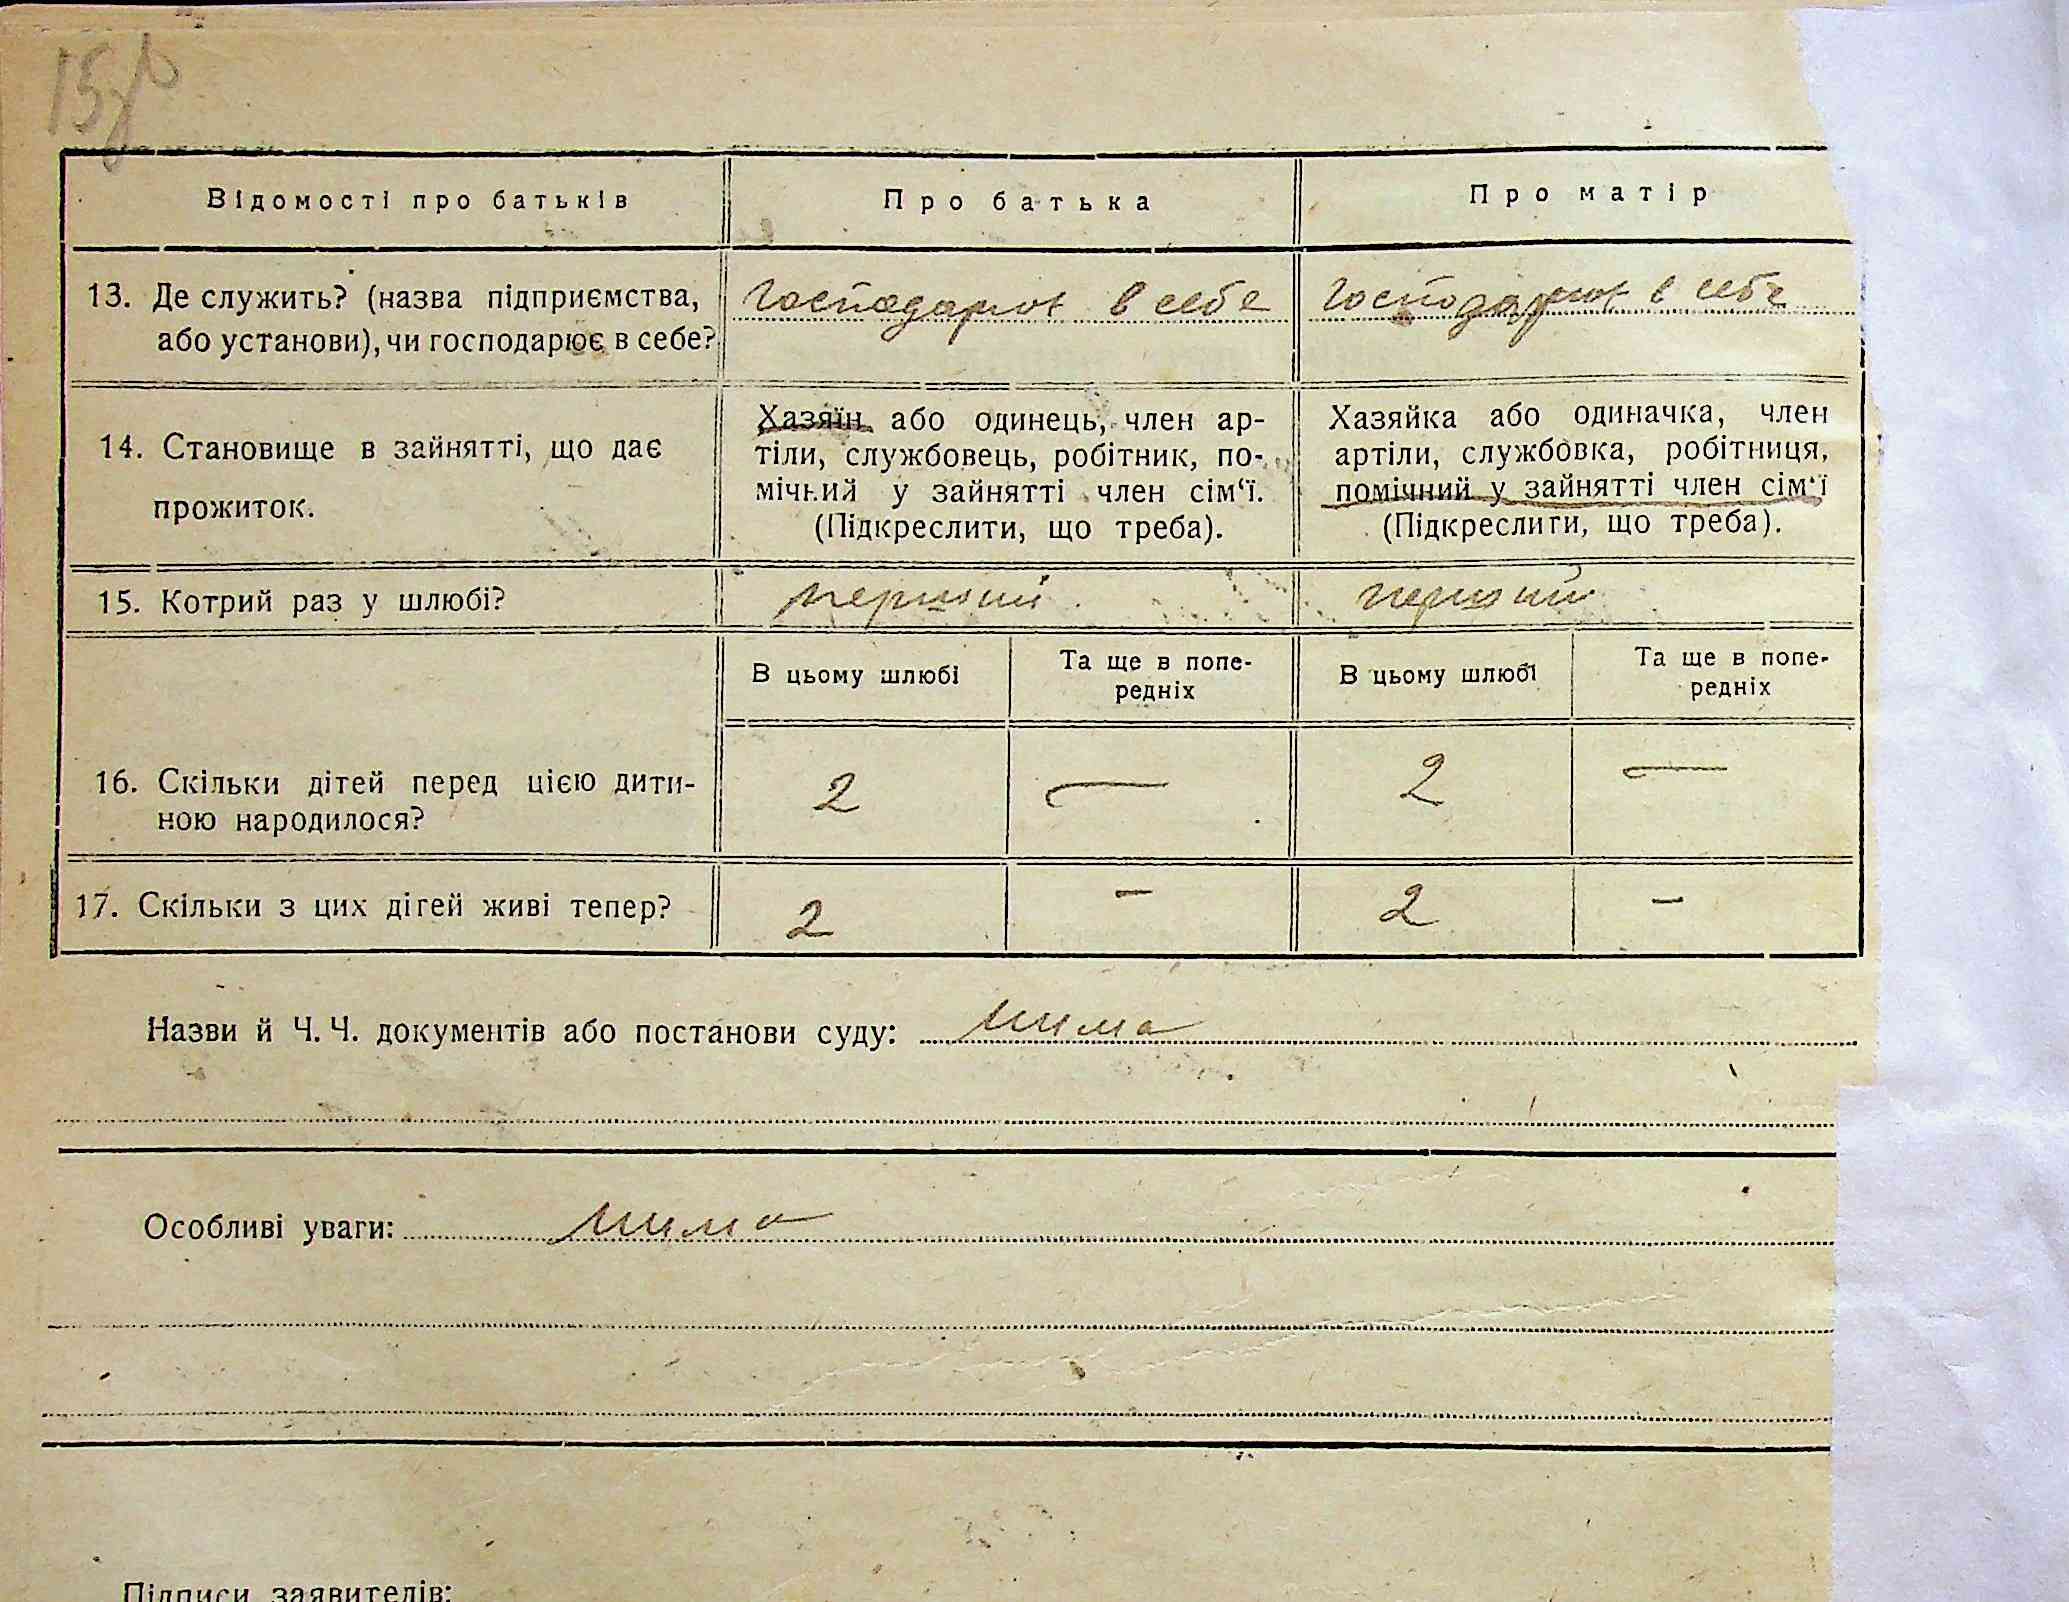 15зв
Відомості про батьків
Про батька
Про матір
13. Де служить? (назва підприємства,
або установи), чи господарює в себе?
господарює в себе
господарює в себе
14. Становище в зайнятті, що дає
прожиток.
Хазяїн або одинець, член ар-
тіли, службовець, робітник, по-
мічний у зайнятті член сім‘ї.
(Підкреслити, що треба).
Хазяйка або одиначка, член
артіли, службовка, робітниця,
помічний у зайнятті член сім‘ї
(Підкреслити, що треба).
15. Котрий раз у шлюбі?
перший
перший
В цьому шлюбі
Та ще в попе-
редніх
В цьому шлюбі
Та ще в попе-
редніх
16. Скільки дітей перед цією дити-
ною народилося?
2
—
2
—
17. Скільки з цих дітей живі тепер?
2
–
2
–
Назви й Ч. Ч. документів або постанови суду: нима
Особливі уваги: нима
Підписи заявителів: